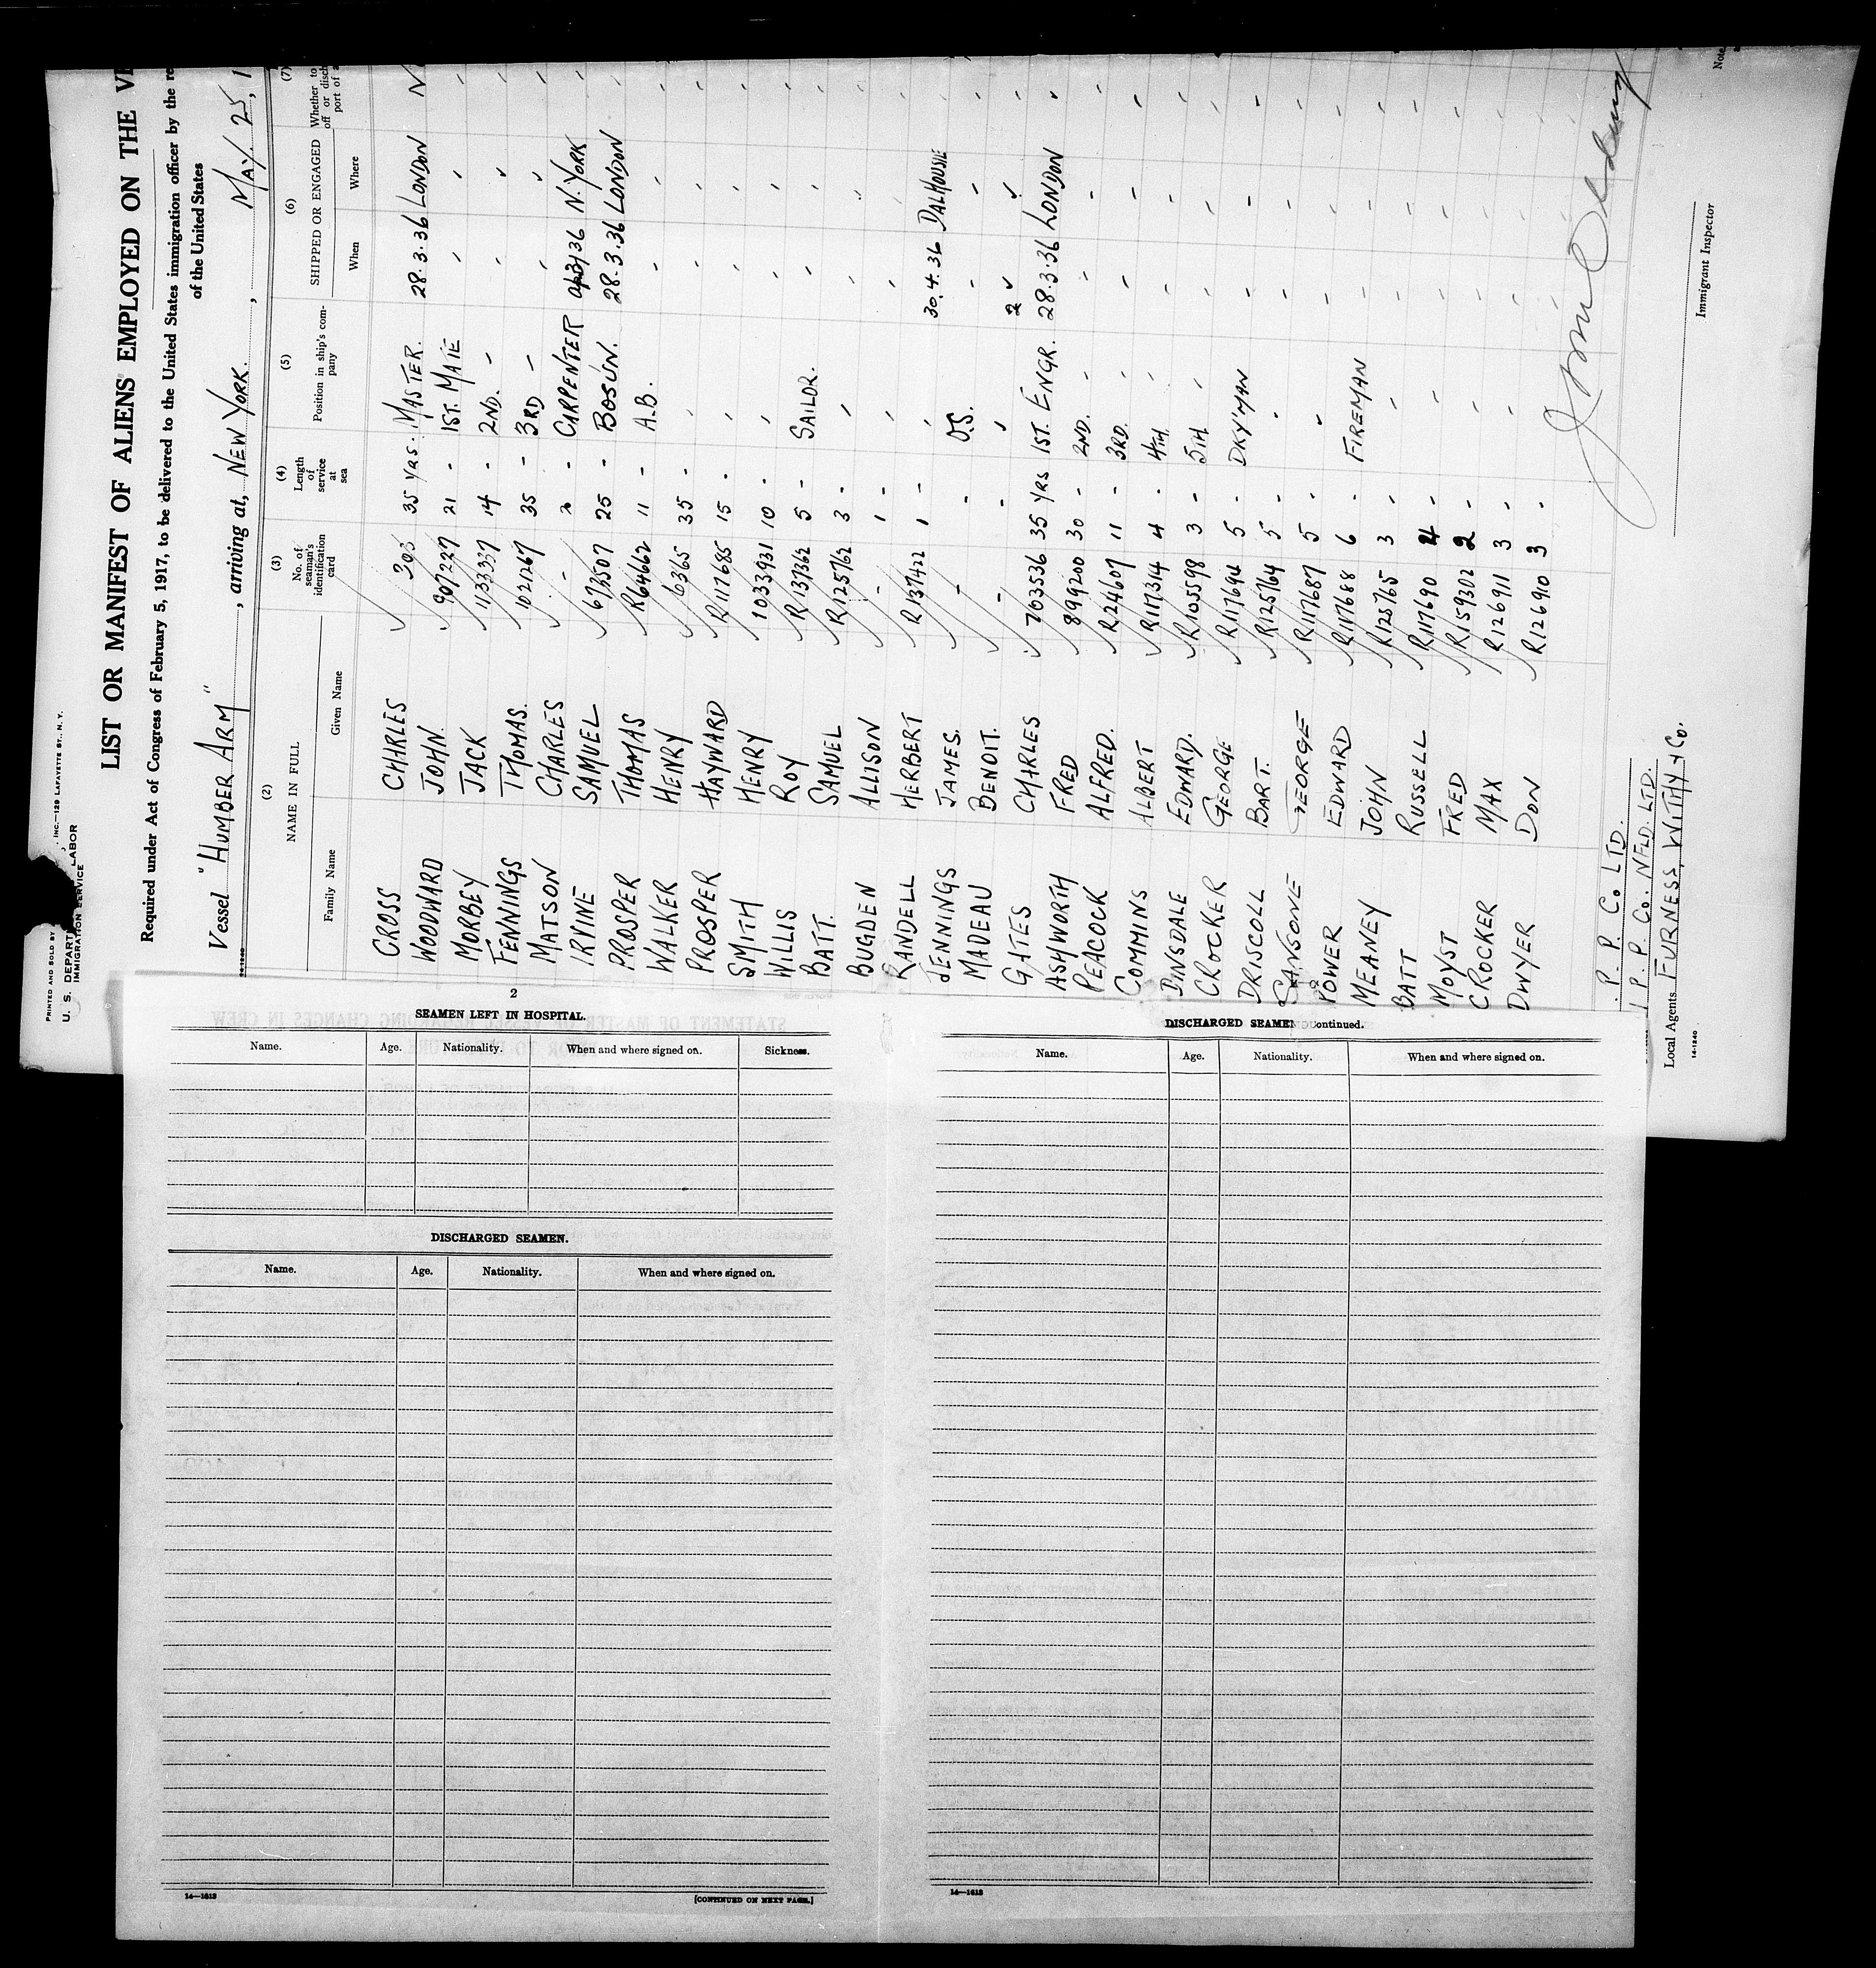 PRINTED AND SOLD BY INC.—129 LAFAYETTE ST., N. Y.
U. S. DEPARTMENT LABOR
IMMIGRATION SERVICE
LIST OR MANIFEST OF ALIENS EMPLOYED ON THE VE
Required under Act of Congress of February 5, 1917, to be delivered to the United States immigration officer by the re
of the United States
Vessel "HUMBER ARM", arriving at, NEW YORK., MAY. 25, 1
14-1240
(2) (3) (4) (5) (6) (7)
NAME IN FULL No. of seaman's identification card Length of service at sea Position in ship's company SHIPPED OR ENGAGED Whether to
Family Name Given Name When Where off or disch port of a
CROSS CHARLES 35 YRS. MASTER. 28.3.36 LONDON N
WOODWARD JOHN 907227 21 - 1ST. MATE " " "
MORBEY JACK 113337 14 - 2ND. - " "
FENNINGS THOMAS. 1021267 35 - 3RD - " " "
MATSON CHARLES - - CARPENTER N. YORK "
IRVINE SAMUEL 673507 25 - BOSUN. 28.3.36 LONDON "
PROSPER THOMAS R64662 11 - A.B. " " "
WALKER HENRY 6365 35 - " " "
PROSPER HAYWARD R117685 15 - " " " "
SMITH HENRY 1033931 10 - " " " "
WILLIS ROY R137362 5 - SAILOR. " " "
BATT. SAMUEL R125762 3 - " " " "
BUGDEN ALLISON - 1 - " " "
RANDELL HERBERT R137422 1 - " 30.4.36 DALHOUSIE "
JENNINGS JAMES. - - O.S. " " "
MADEAU BENOIT. - - " " "
GATES CHARLES 703536 35 YRS 1ST. ENGR. 28.3.36 LONDON "
ASHWORTH FRED 899200 30 - 2ND. " " " "
PEACOCK ALFRED. R24607 11 - 3RD. " " " "
COMMINS ALBERT R117314 4 - 4TH. " " " "
DINSDALE EDWARD. R105598 3 - 5TH " " " "
CROCKER GEORGE R117694 5 - DKY'MAN " " "
DRISCOLL BART. R125764 5 - " " " "
SANSONE GEORGE R117687 5 - " " " "
POWER EDWARD R117688 6 - FIREMAN " " "
MEANEY JOHN R125765 3 " " " " "
BATT RUSSELL R117690 4 - " " " "
MOYST FRED R159302 2 - " " " "
CROCKER MAX R126911 3 " " " " "
DWYER DON R126910 3 - " " "
P. P. Co LTD.
P. P. Co. NFLD. LTD.
Local Agents FURNESS, WITHY & Co.
14-1240
Immigrant Inspector
Note
2
SEAMEN LEFT IN HOSPITAL.
Name. Age. Nationality. When and where signed on. Sickness.
DISCHARGED SEAMEN.
Name. Age. Nationality. When and where signed on.
14—1613
[CONTINUED ON NEXT PAGE.]
DISCHARGED SEAMEN Continued.
Name. Age. Nationality. When and where signed on.
14—1613